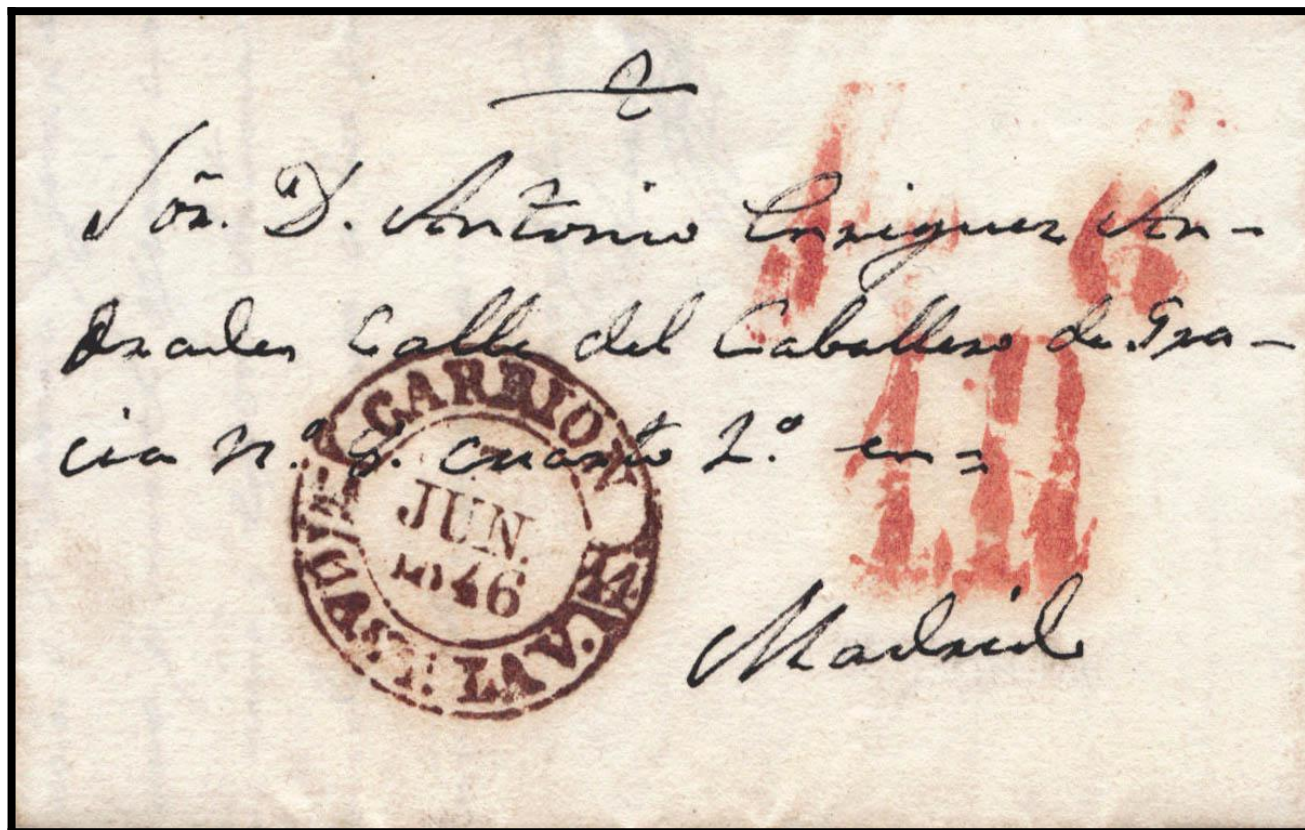 Sōr. D. Antonio Enriquez An-
drades Calle del Caballero de Gra-
cia n.º 8. cuarto 2.º en=
Madrid
CARRION
JUN.
1846